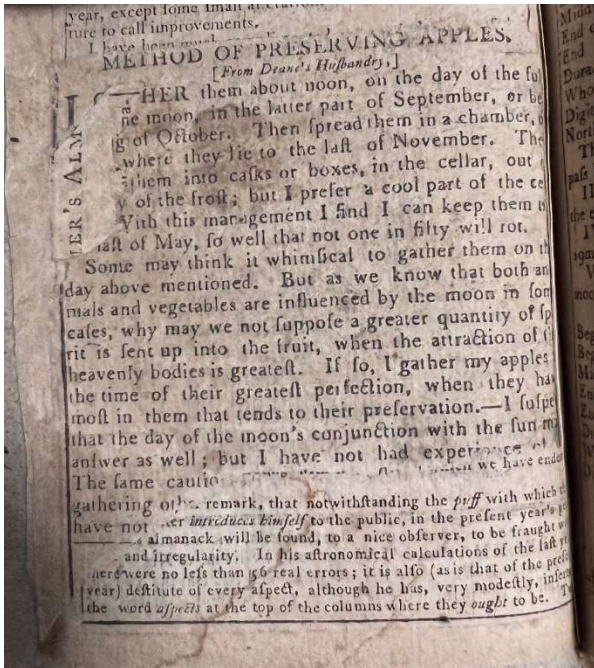 year, except some small
ture to call improvements.
I have been much
METHOD OF PRESERVING APPLES.
[From Deane's Husbandry.]
HER them about noon, on the day of the ful
ne moon, in the latter part of September, or be
g of October. Then spread them in a chamber,
where they lie to the last of November. The
them into casks or boxes, in the cellar, out
y of the frost; but I prefer a cool part of the ce
With this management I find I can keep them
last of May, so well that not one in fifty will rot.
Some may think it whimsical to gather them on th
day above mentioned. But as we know that both an
mals and vegetables are influenced by the moon in som
cases, why may we not suppose a greater quantity of sp
rit is sent up into the fruit, when the attraction of
heavenly bodies is greatest. If so, I gather my apples
the time of their greatest perfection, when they ha
most in them that tends to their preservation.—I suspe
that the day of the moon's conjunction with the sun m
answer as well; but I have not had experience
The same cautio
we have
gathering
have not
remark, that notwithstanding the puff with which
introduces himself to the public, in the present year's
almanack will be found, to a nice observer, to be fraught
and irregularity. In his astronomical calculations of the last
there were no less than 56 real errors; it is also (as is that of the prese
year) destitute of every aspect, although he has, very modestly, inserte
the word aspects at the top of the columns where they ought to be.
MER'S ALM